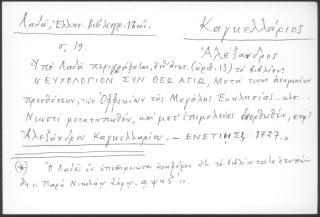 Λαδᾶ, Ἑλλην. Βιβλιογρ. 18 αἰ.
Καγκελλάριος
σ, 19.
Ἀλέξανδρος
Ὑπὸ Λαδᾶ περιγράφεται, (ἀριθ. 13) τὸ βιβλίον:
"ΕΥΧΟΛΟΓΙΟΝ ΣΥΝ ΘΕΩ ΑΓΙΩ, Μετά τινων ἀναγκαίων
προσθέσεων, τῶν Ὀφφικίων τῆς Μεγάλης Ἐκκλησίας
Νεωστὶ μετατυπωθέν, καὶ μετ' ἐπιμελείας διορθωθέν, παρὰ
Ἀλεξάνδρου Καγκελλαρίου. – ΕΝΕΤΙΗΣΙ, 1727.»
(*) Ὁ Λαδᾶς ἐν ὑποσημειώσει ἀναφέρει ὅτι τὸ βιβλίον τοῦτο ἐτυπώ-
θη "Παρὰ Νικολάῳ Σάρῳ. αψκζ"